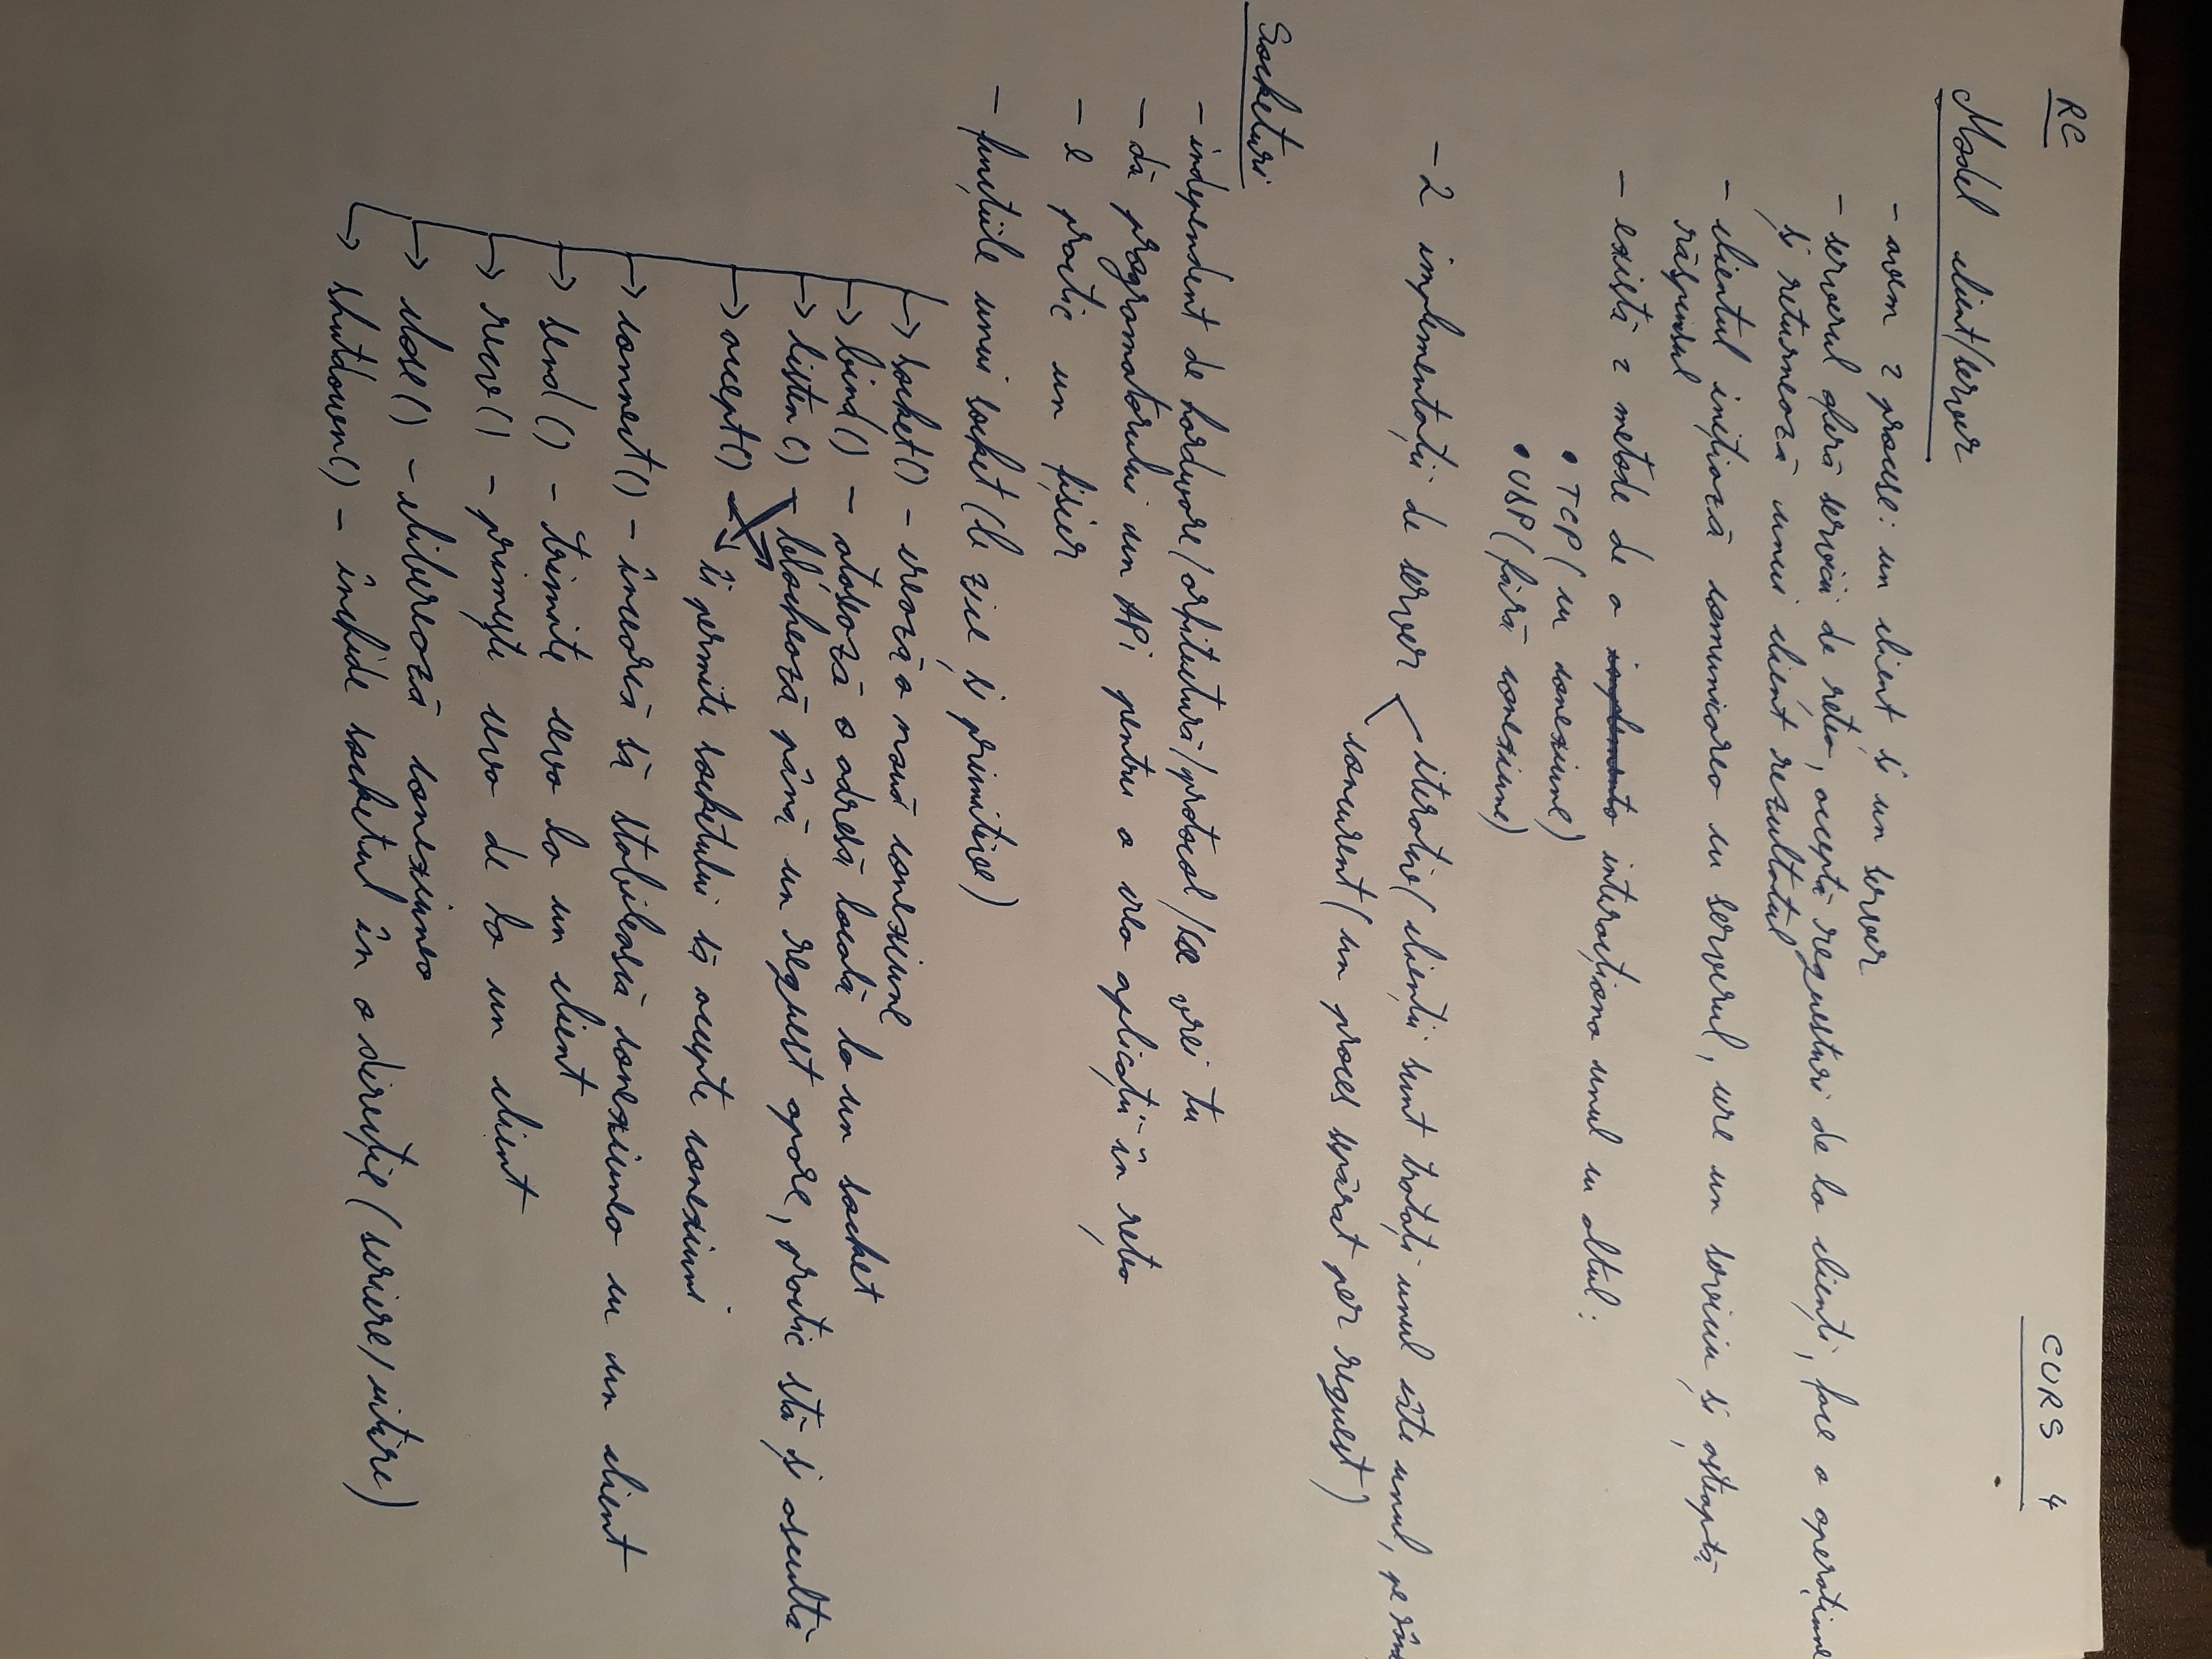 RC
CURS 4
Model client/server
- avem 2 procese: un client și un server
- serverul oferă servicii de rețea, acceptă requesturi de la clienți, face o operațiune
și returnează unui client rezultatul
- clientul inițiază comunicarea cu serverul, cere un serviciu și așteaptă
răspunsul
- există 2 metode de a implementa interacționa unul cu altul:
• TCP (cu conexiune)
• UDP (fără conexiune)
- 2 implementații de server
iterativ (clienții sunt tratați unul câte unul, pe rând
concurent (un proces separat per request)
Socketuri
- independent de hardware/arhitectură/protocol/ce vrei tu
- dă programatorului un API pentru a crea aplicații în rețea
- e practic un fișier
- funcțiile unui socket (le zice și primitive)
→ socket() - crează o nouă conexiune
→ bind() - atașează o adresă locală la un socket
→ listen() - blochează până un request apare, practic stă și ascultă
→ accept() → îi permite socketului să accepte conexiuni
→ connect() - încearcă să stabilească conexiunea cu un client
→ send() - trimite ceva la un client
→ recv() - primește ceva de la un client
→ close() - eliberează conexiunea
→ shutdown() - închide socketul în o direcție (scriere/citire)